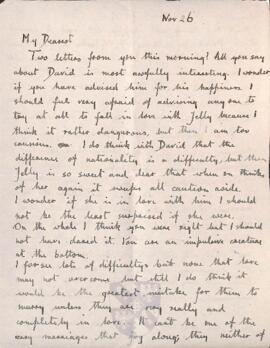 Nov 26
My Dearest
Two letters from you this morning! All you say
about David is most awfully interesting. I wonder
if you have advised him for his happiness I
should feel very afraid of advising anyone to
try at all to fall in love with Jelly because I
think it rather dangerous, but then I am too
cautious. I do think with David that the
difference of nationality is a difficulty, but then
Jelly is so sweet and dear that when one thinks
of her again it sweeps all caution aside.
I wonder if she is in love with him I should
not be the least surprised if she were.
On the whole I think you were right but I should
not have dared it. You are an impulsive creature
at the bottom.
I foresee lots of difficulties but none that love
may not overcome but still I do think it
would be the greatest mistake for them to
marry unless they are very really and
completely in love. It can't be one of the
easy marriages that jog along, they neither of